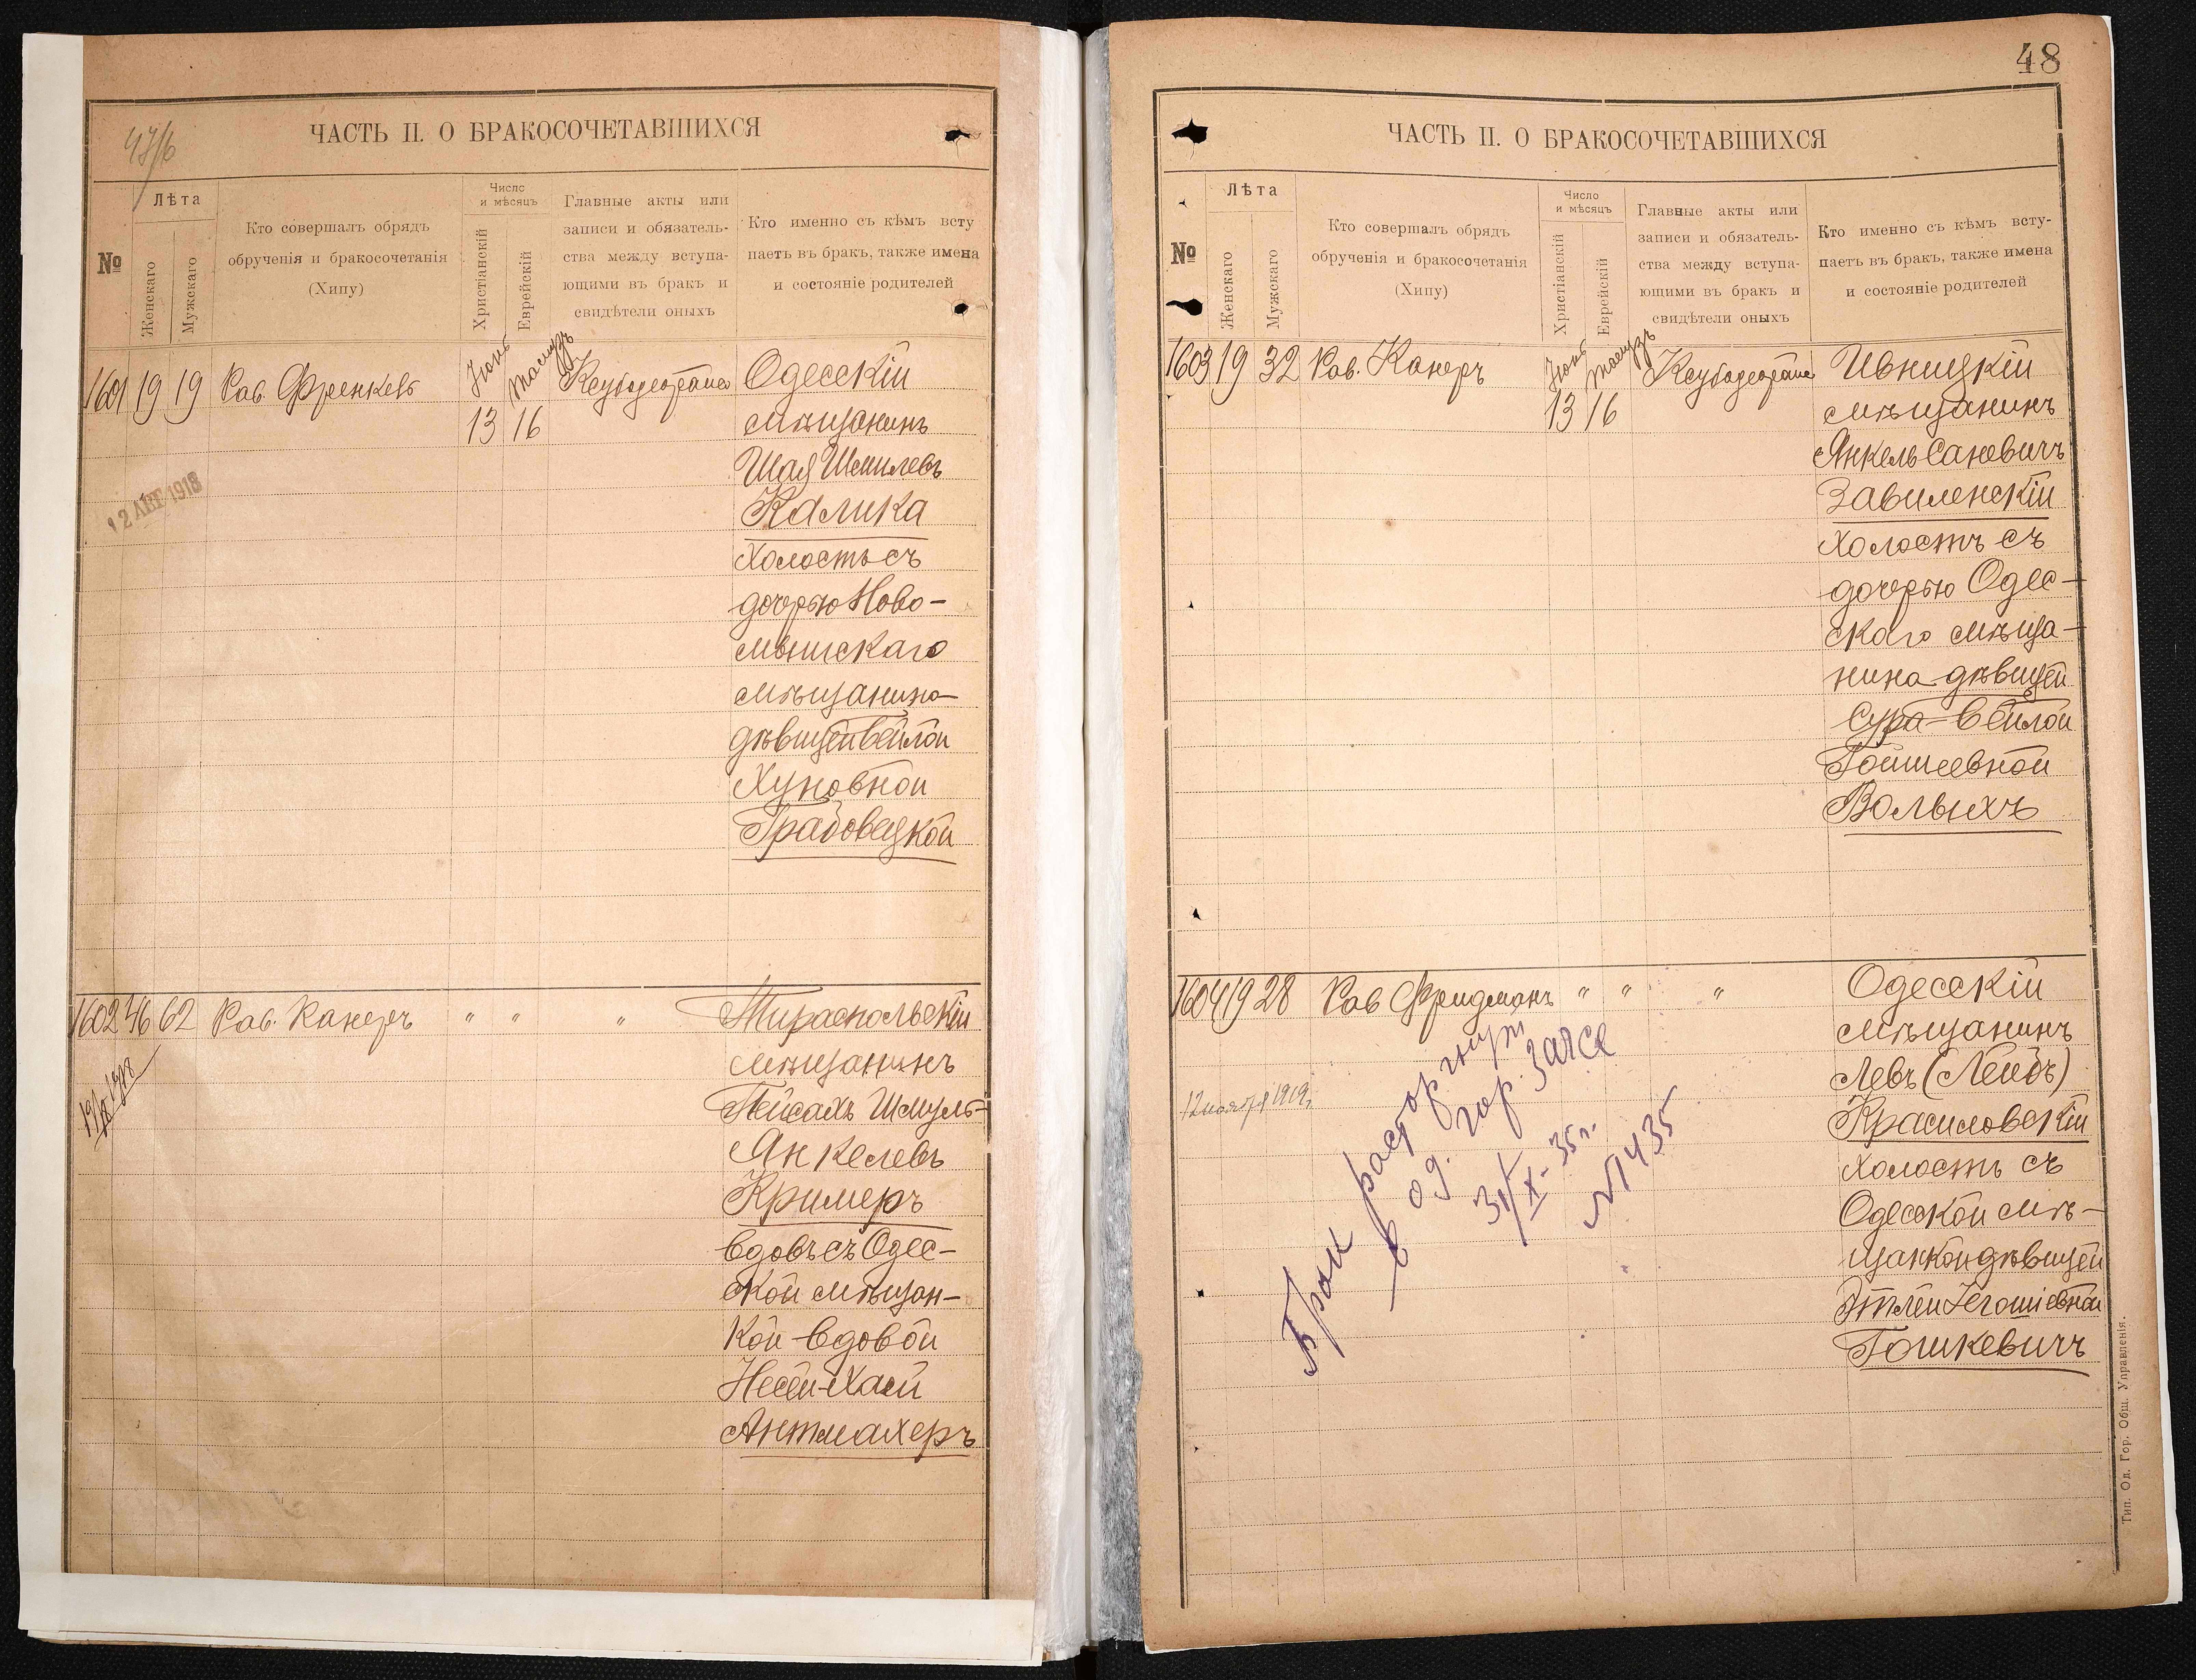 47/б
ЧАСТЬ II. О БРАКОСОЧЕТАВШИХСЯ
№
Лѣта
Женскаго
Мужскаго
Кто совершалъ обрядъ
обрученія и бракосочетанія
(Хипу)
Число
и мѣсяцъ
Христіанскій
Еврейскій
Главные акты или
записи и обязатель-
ства между вступа-
ющими въ бракъ и
свидѣтели оныхъ
Кто именно съ кѣмъ всту
паетъ въ бракъ, также имена
и состояніе родителей
1601 19 19 Рав. Френкель
Іюнь 13
Тамузъ 16
Одесскій
мѣщанинъ
Шая Шмилевъ
Калика
холостъ съ
дочерью Ново-
мышскаго
мѣщанина
дѣвицей Бейлой
Хуновной
Грабовецкой
12 АВГ 1918
1602 46 62 Рав. Канеръ " " "
Тираспольскій
мѣщанинъ
Пейсахъ Шмуль-
Янкелевъ
Кримеръ
вдовъ съ Одес-
ской мѣщан-
кой вдовой
Несей-Хаей
Антмахеръ
48
ЧАСТЬ II. О БРАКОСОЧЕТАВШИХСЯ
№
Лѣта
Женскаго
Мужскаго
Кто совершалъ обрядъ
обрученія и бракосочетанія
(Хипу)
Число
и мѣсяцъ
Христіанскій
Еврейскій
Главные акты или
записи и обязатель-
ства между вступа-
ющими въ бракъ и
свидѣтели оныхъ
Кто именно съ кѣмъ всту-
паетъ въ бракъ, также имена
и состояніе родителей
1603 19 32 Рав. Канеръ
Іюнь 13
Тамузъ 16
Ивницкій
мѣщанинъ
Янкель Саневичъ
Завиленскій
холостъ съ
дочерью Одес-
скаго мѣща-
нина дѣвицей
Сура-Бейлой
Гойшеевной
Вольихъ
1604 19 28 Рав Фридманъ " " "
Одесскій
мѣщанинъ
Левъ (Лейбъ)
Красиловскій
холостъ съ
Одесской мѣ-
щанкой дѣвицей
Этлей Іегошіевной
Гошкевичъ
12 ноября 1919 г.
Брак расторгнут
в од. гор. Загсе
31/X-35 г.
№ 1435
Тип. Од. Гор. Общ. Управленія.